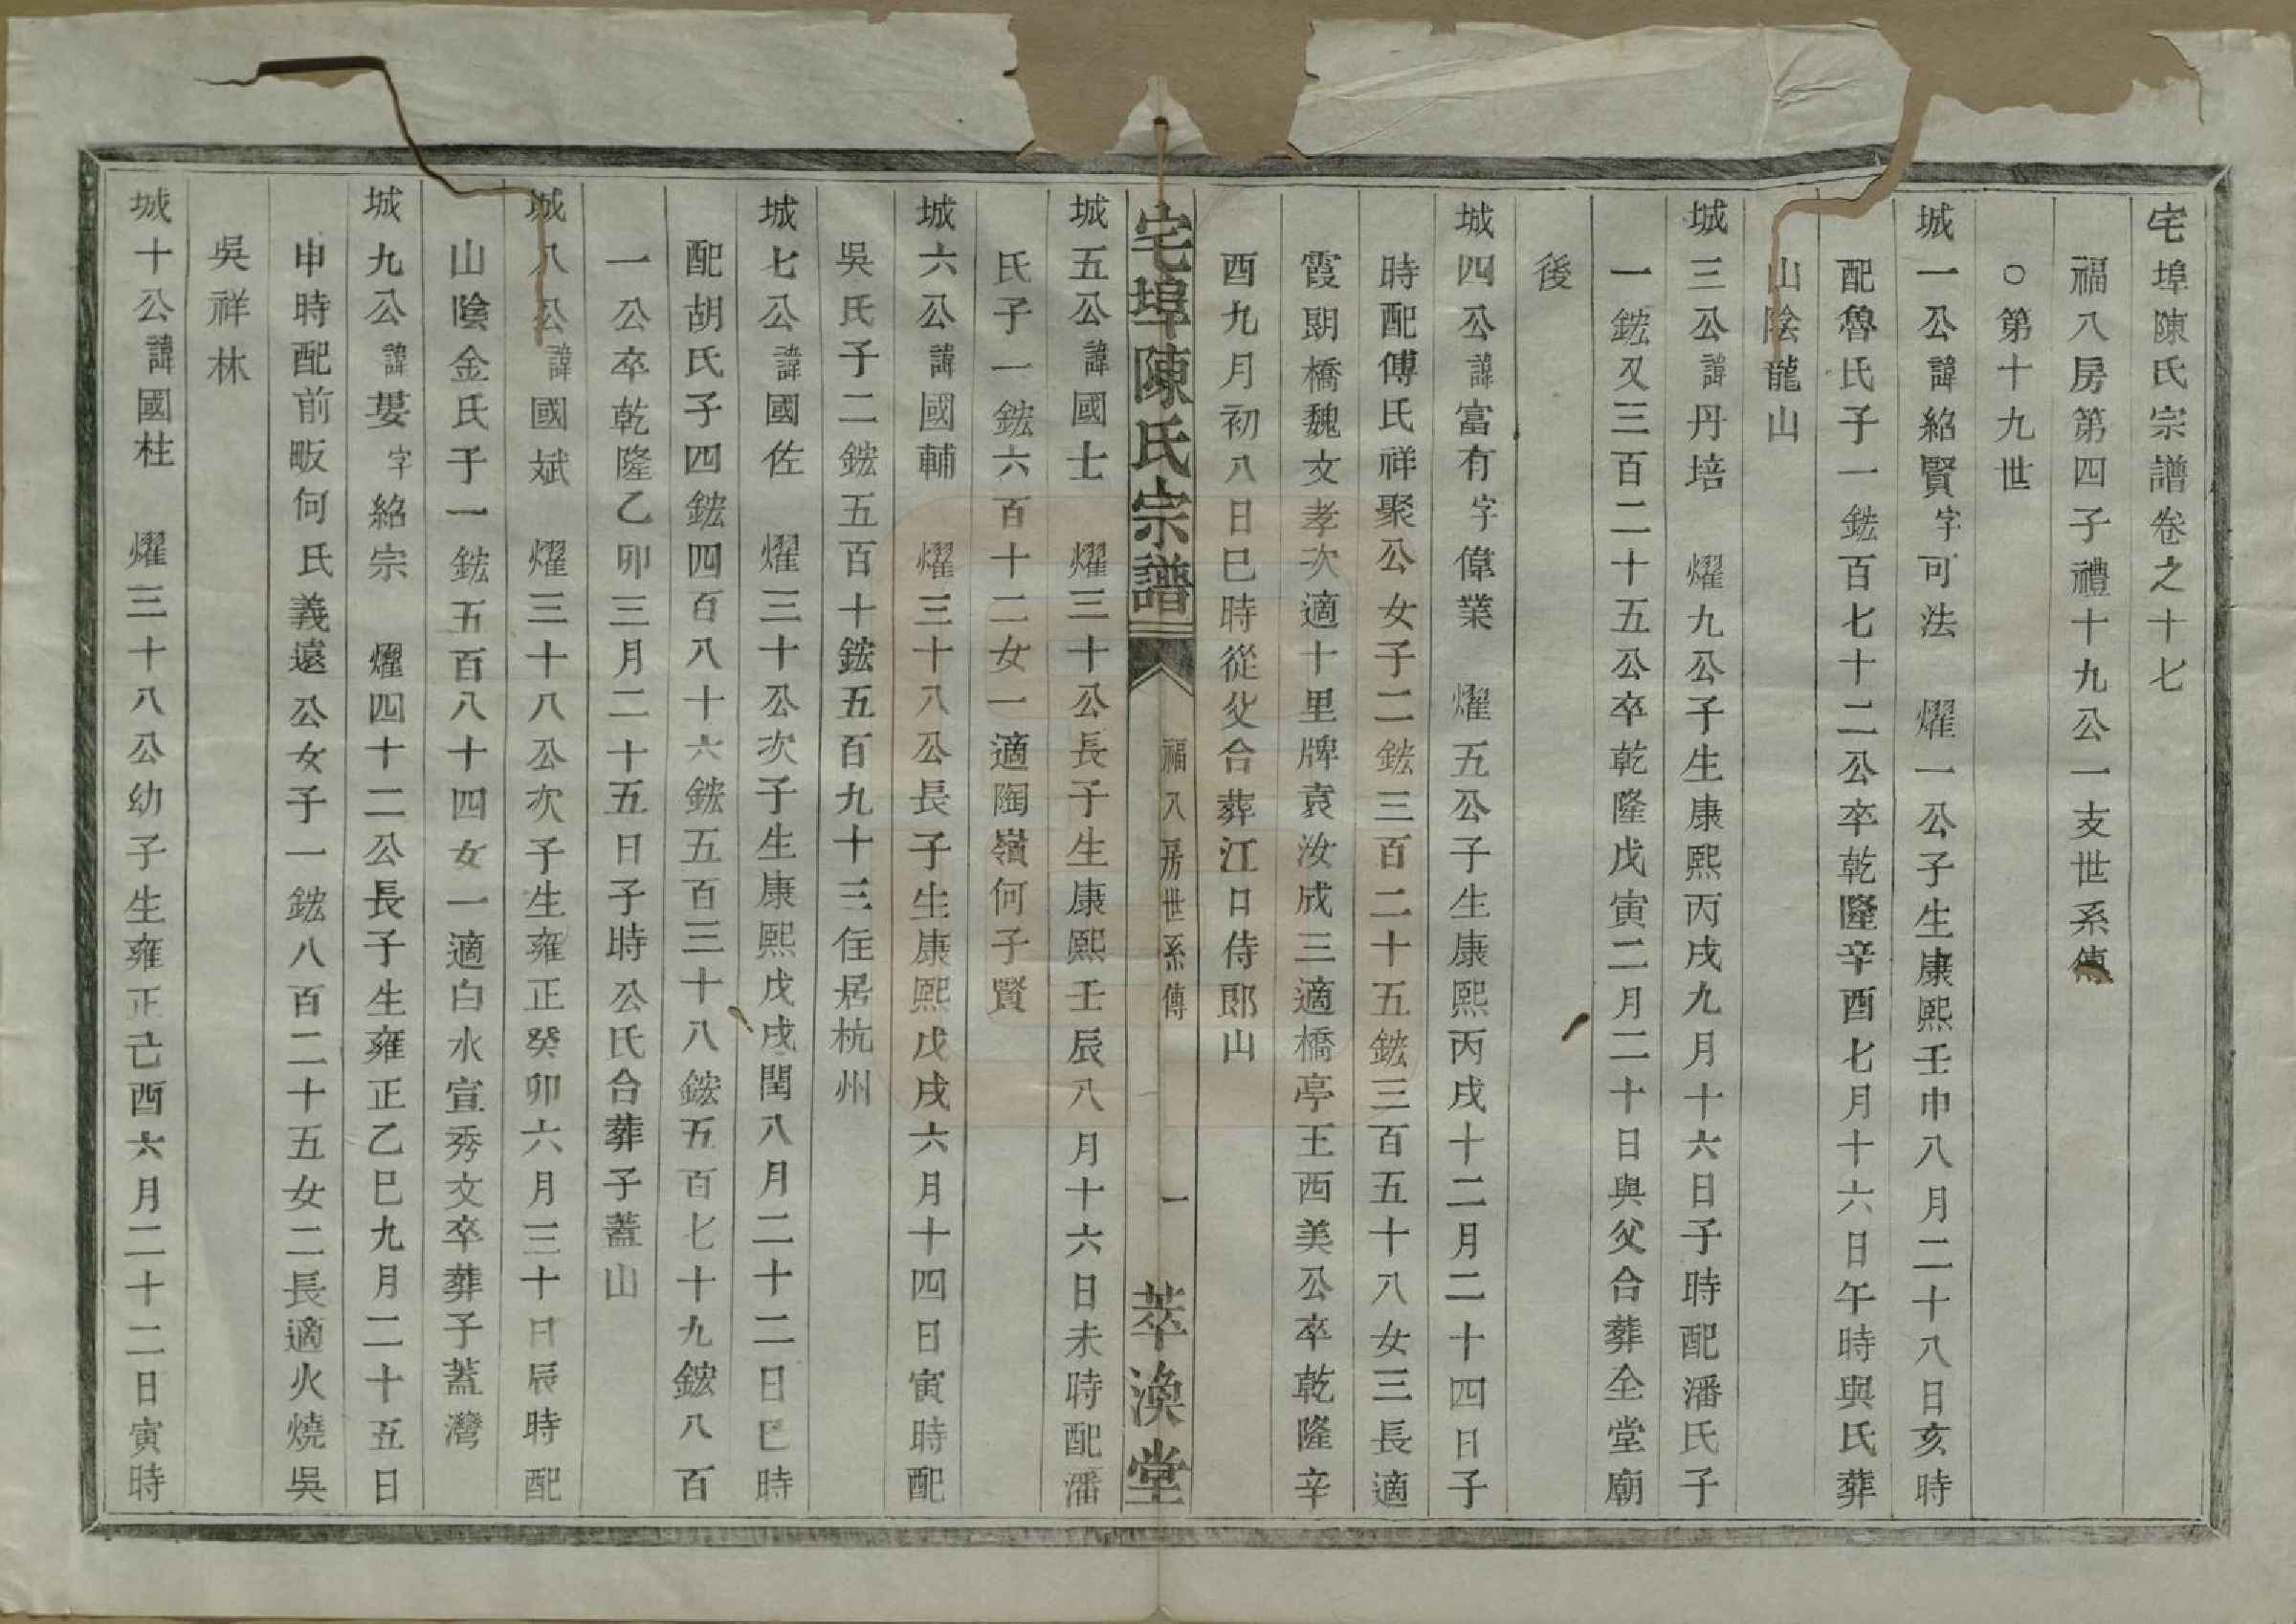 宅埠陳氏宗譜卷之十七
福八房第四子禮十九公一支世系傳
○第十九世
城一公諱紹賢字可法 燿一公子生康熙壬申八月二十八日亥時
配魯氏子一鋐百七十二公卒乾隆辛酉七月十六日午時與氏葬
山陰龍山
城三公諱丹培 燿九公子生康熙丙戌九月十六日子時配潘氏子
一鋐又三百二十五公卒乾隆戊寅二月二十日與父合葬全堂廟
後
城四公諱富有字偉業 燿五公子生康熙丙戌十二月二十四日子
時配傅氏祥聚公女子二鋐三百二十五鋐三百五十八女三長適
霞朗橋魏文孝次適十里牌袁汝成三適橋亭王西美公卒乾隆辛
酉九月初八日巳時從父合葬江口侍郎山
宅埠陳氏宗譜 福八房世系傳 一 萃渙堂
城五公諱國士 燿三十公長子生康熙壬辰八月十六日未時配潘
氏子一鋐六百十二女一適陶嶺何子賢
城六公諱國輔 燿三十八公長子生康熙戊戌六月十四日寅時配
吳氏子二鋐五百十鋐五百九十三住居杭州
城七公諱國佐 燿三十公次子生康熙戊戌閏八月二十二日巳時
配胡氏子四鋐四百八十六鋐五百三十八鋐五百七十九鋐八百
一公卒乾隆乙卯三月二十五日子時公氏合葬子蓋山
城八公諱國斌 燿三十八公次子生雍正癸卯六月三十日辰時配
山陰金氏子一鋐五百八十四女一適白水宣秀文卒葬子蓋灣
城九公諱娶字紹宗 燿四十二公長子生雍正乙巳九月二十五日
申時配前畈何氏義遠公女子一鋐八百二十五女二長適火燒吳
吳祥林
城十公諱國柱 燿三十八公幼子生雍正己酉六月二十二日寅時